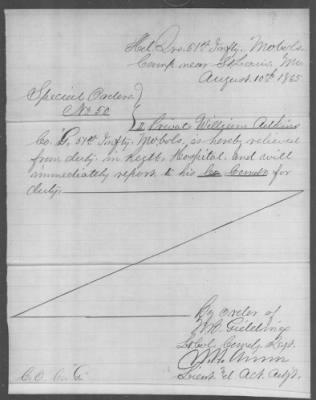 Hd. Qrs. 51st Infty. Mo. Vols.
Camp near St. Louis, Mo
August 10th 1865
Special Orders
No 50
Private William Adkins
Co. G. 51st Infty. Mo Vols, is hereby relieved
from duty in Regtl. Hospital. and will
immediately report to his Co Comdr for
duty.
By order of
Comdg Regt.
Lieut & Act. Adjt.
C.O. Co. "G"